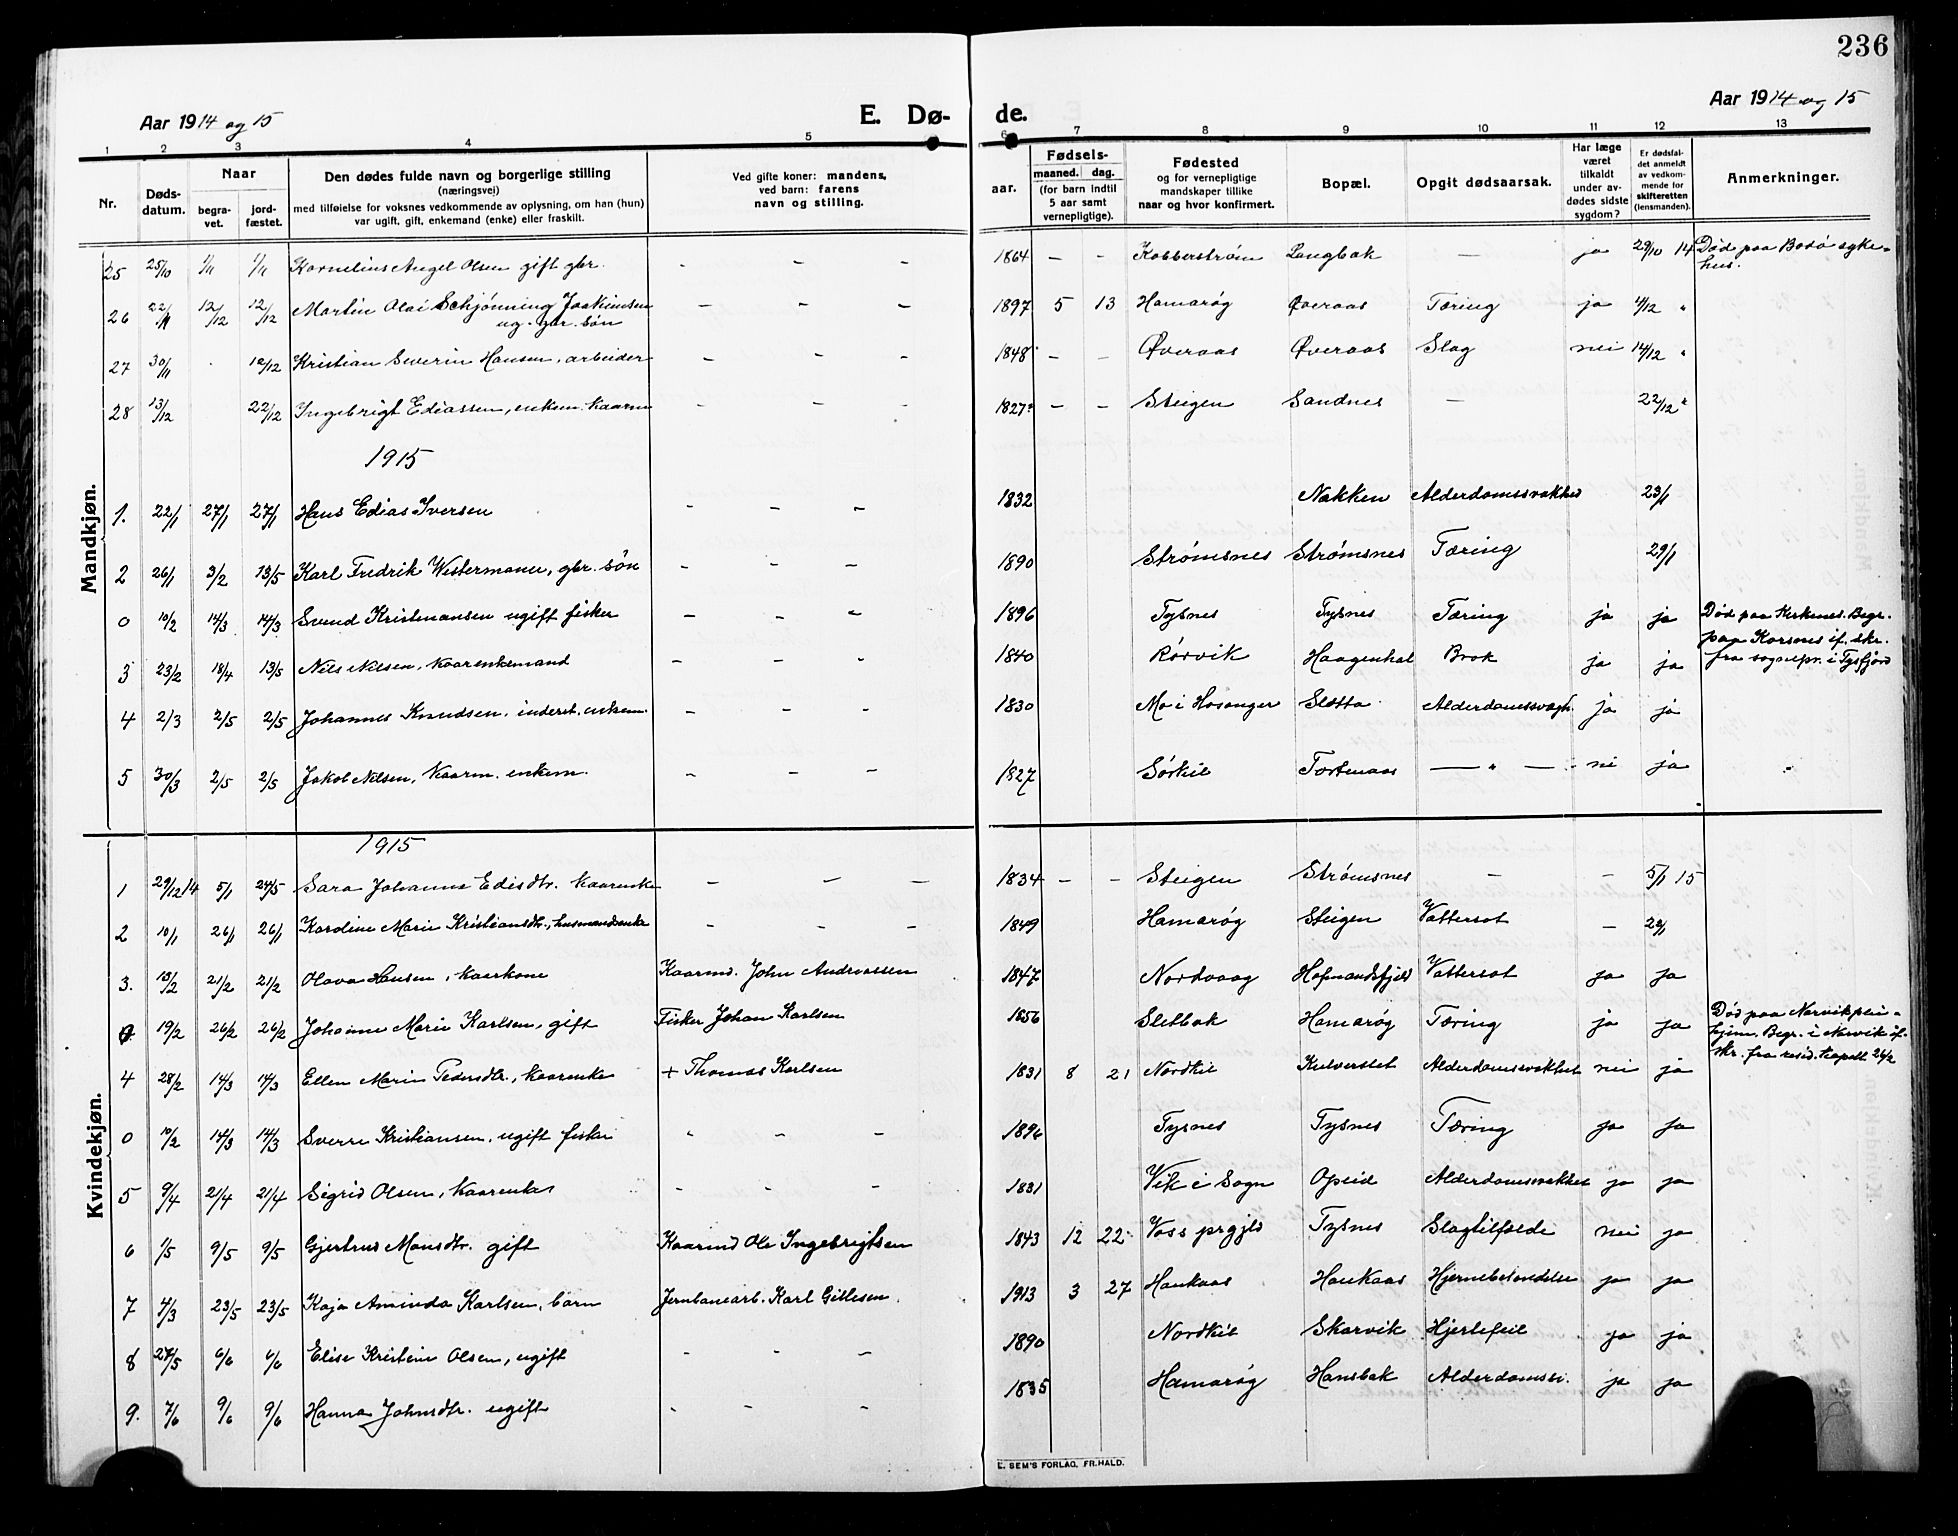 236
Aar 1914 og 15 E. Dø- de. Aar 1914 og 15
1 2 3 4 5 6 7 8 9 10 11 12 13
Nr. Døds-datum. Naar begra-vet. jord-fæstet. Den dødes fulde navn og borgerlige stilling (næringsvei) med tilføielse for voksnes vedkommende av oplysning, om han (hun) var ugift, gift, enkemand (enke) eller fraskilt. Ved gifte koner: mandens, ved barn: farens navn og stilling. aar. Fødsels- maaned. dag. (for barn indtil 5 aar samt vernepligtige). Fødested og for vernepligtige mandskaper tillike naar og hvor konfirmert. Bopæl. Opgit dødsaarsak. Har læge været tilkaldt under av-dødes sidste sygdom? Er dødsfal-det anmeldt av vedkom-mende for skifteretten (lensmanden). Anmerkninger.
Mandkjøn.
25 25/10 1/11 1/11 Kornelius Angel Olsen gift gbr. - - - 1864 - - Kobberstrøm Langbak - ja 29/10 14 Død paa Bodø syke-
hus.
26 22/11 12/12 12/12 Martin Olai Schjønning Joakimsen - - - 1897 5 13 Hamarøy Øveraas Tæring ja 4/12 "
ug. gbr. søn
27 30/11 . 12/12 Kristian Severin Hansen, arbeider - - - 1848 - - Øveraas Øveraas Slag nei 14/12 "
28 13/12 22/12 Ingebrigt Ediassen, enkem. kaarm - - - 1827 - - Steigen Sandnes - 22/12 "
1915
1. 22/1 27/1 27/1 Hans Edias Iversen - - - 1832 Nakken Alderdomssvakhed 23/1
2 26/1 3/2 13/5 Karl Fredrik Westermann, gbr. søn - - - 1890 Strømsnes Strømsnes Tæring 29/1
0 10/2 14/3 14/3 Svend Kristiansen ugift fisker - - - 1896 Tysnes Tysnes Tæring ja ja Død paa Kirkenes. Begr.
paa Korsnes if. skr.
fra sognepr. i Tysfjord
3 23/2 18/4 13/5 Nils Nilsen, kaarenkemand - - - 1840 Rørvik Haagenhal Brok ja ja
4 2/3 2/5 2/5 Johannes Knudsen, inderst, enkem. - - - 1830 Mo i Hosanger Sletta Alderdomssvagh. ja ja
5 30/3 2/5 2/5 Jakob Nilsen, kaarm. enkem. - - - 1827 Sørkil Tortenaas - " - nei ja "
Kvindekjøn.
1915
1 29/12 14 5/1 24/5 Sara Johanna Edisdtr. kaarenke - - - 1834 - - Steigen Strømsnes - - 5/1 15
2 10/1 26/1 26/1 Karoline Marie Kristiansdtr., husmandsenke - - - 1849 Hamarøy Steigen Vattersot - 22/1
3. 13/2 21/2 21/2 Olava Hansen, kaarkone Kaarmd. John Andreassen 1847 Nordvaag Hofmandsfjeld Vattersot ja ja
0. 19/2 26/2 26/2 Johanne Marie Karlsen, gift Fisker Johan Karlsen 1856 Sletbak Hamarøy Tæring ja ja Død paa Narvik plei-
hjem. Begr. i Narvik if.
skr. fra resid. kapell. 26/2
4 28/2 14/3 14/3 Ellen Marie Pedersdtr., kaarenke + Thomas Karlsen 1831 8 21 Nordkil Kulverslet Alderdomssvakhet nei ja
0 10/2 14/3 14/3 Sverre Kristiansen, ugift fisker - - - 1896 Tysnes Tysnes Tæring ja ja
5 9/4 21/4 21/4 Sigrid Olsen, kaarenke - - - 1831 Vik i Sogn Opeid Alderdomssvakhet ja ja
6 1/5 9/5 9/5 Gjertrud Monsdtr. gift Kaarmd Ole Ingebrigtsen 1843 12 22 Voss prgjld Tysnes Slagtilfælde nei ja
7 4/3 23/5 23/5 Kaja Aminda Karlsen, barn Jernbanearb. Karl Gillesen 1913 3 27 Haukaas Haukaas Hjernebetændelse ja ja
8 27/5 6/6 6/6 Elise Kristine Olsen, ugift - - - 1890 Nordkil Skarvik Hjertefeil ja ja
9. 7/6 9/6 9/6 Hanna Johnsdtr. ugift - - - 1835 Hamarøy Hansbak Alderdomssv. ja ja
E. SEM'S FORLAG, FR.HALD.